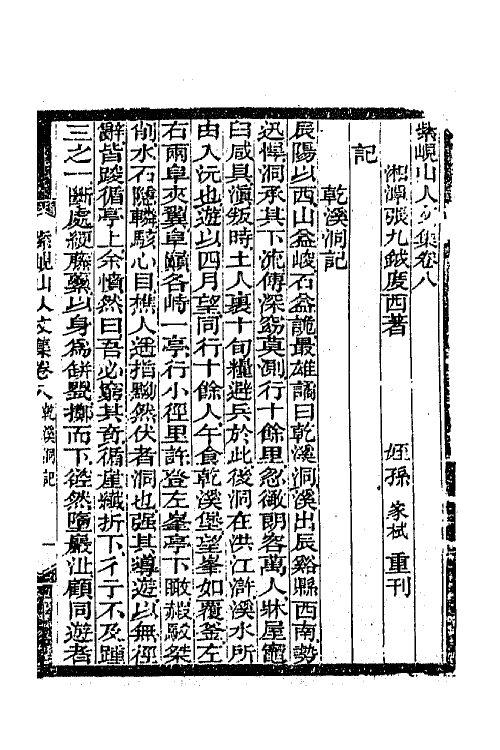 紫峴山人文集卷八
湘潭張九鉞度西著
姪孫家栻重刊
記
乾溪洞記
辰陽以西山益峻石益詭最雄譎曰乾溪洞溪出辰谿縣西南勢
迅悍洞承其下流傳深窈莫測行十餘里忽徹朗容萬人牀屋竈
臼咸具滇叛時土人裏十旬糧避兵於此後洞在洪江滸溪水所
由入沅也遊以四月望同行十餘人午食乾溪堡望峯如覆釜左
右兩阜夾翼阜巔各峙一亭行小徑里許登左峯亭下瞰嵌駮桀
削水石隱轔駭心目樵人遙指黝然伏者洞也强其導遊以無徑
辭皆踆循亭上余憤然曰吾必窮其奇循崖巇折下彳亍不及踵
三之一斷處綆藤藥以身為缾甖擲而下硿然墮嚴沚顧同遊者
紫峴山人文集卷八 乾溪洞記 一